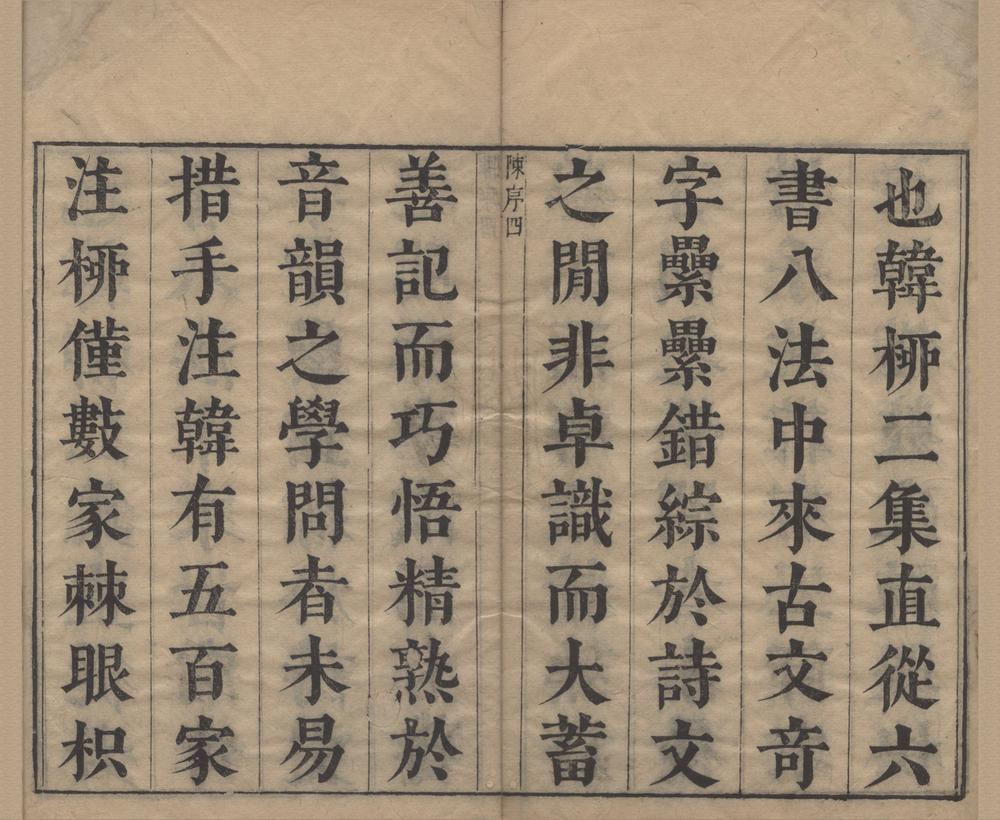 也韓栁二集直從六
書八法中來古文奇
字纍纍錯綜於詩文
之閒非卓識而大蓄
陳序四
善記而巧悟精熟於
音韻之學問者未易
措手注韓有五百家
注栁僅數家棘眼枳